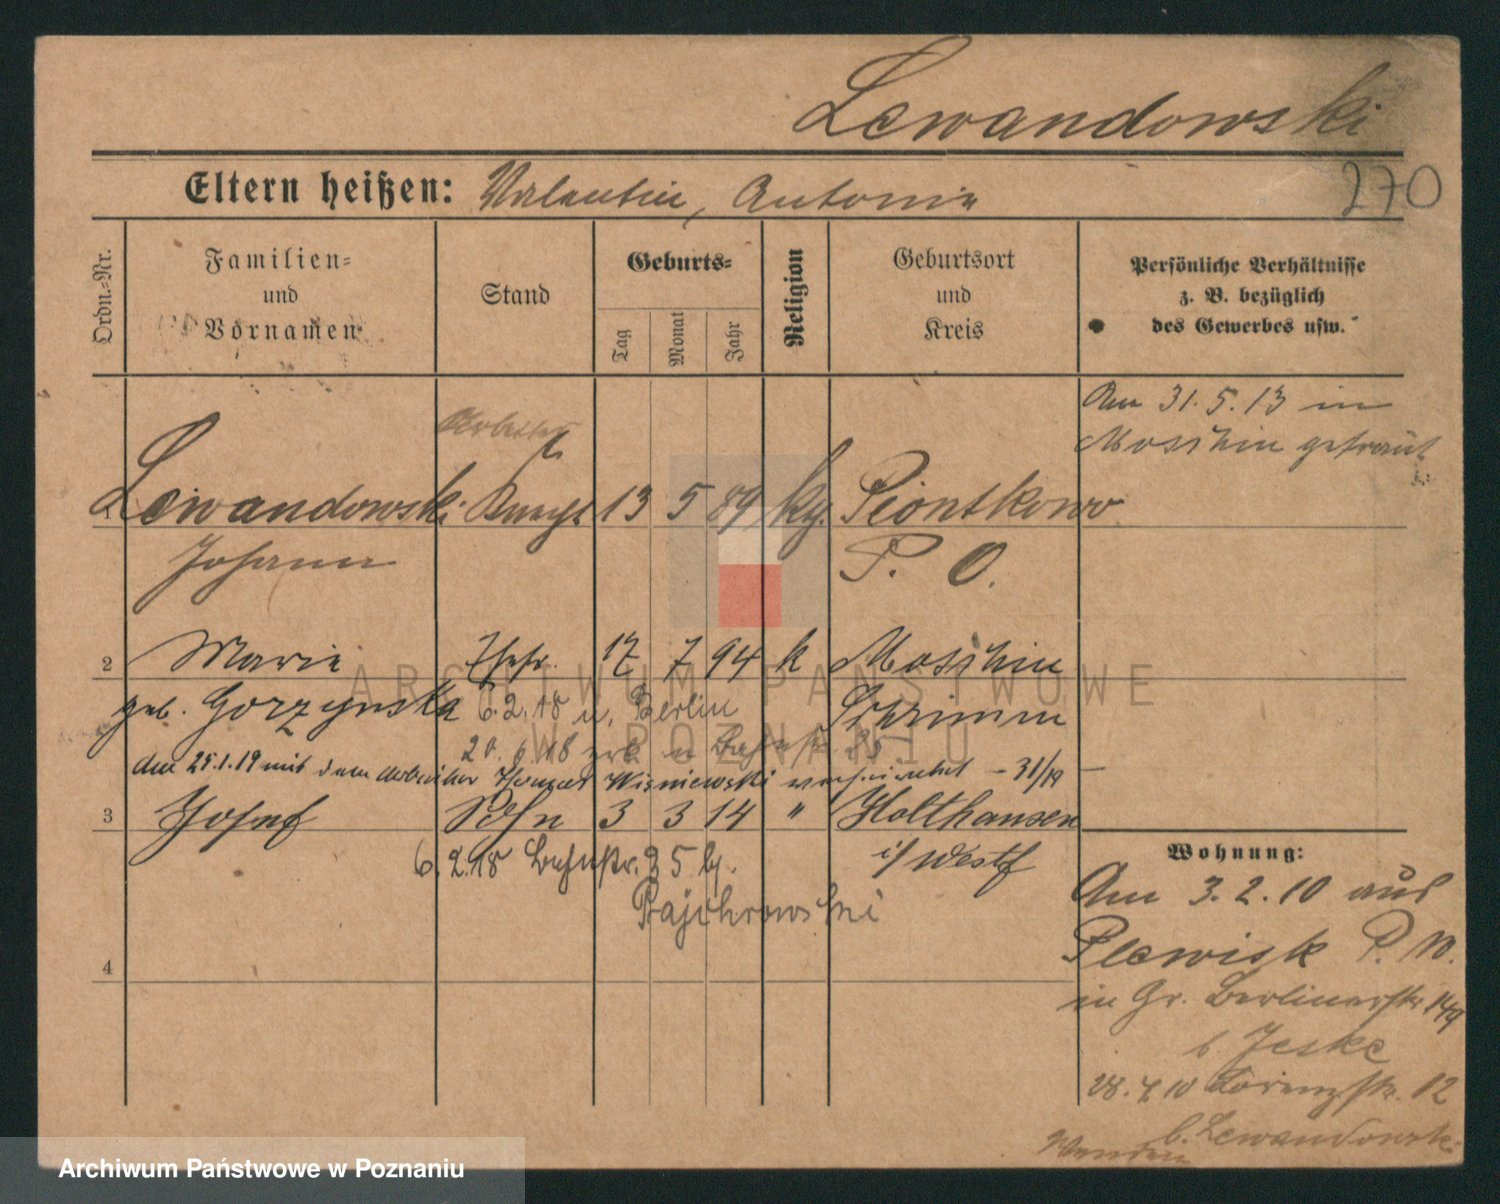 Lewandowski
270
Eltern heißen: Valentin, Antonie
Ordn.-Nr.
Familien-
und
Vornamen
Stand
Geburts-
Tag
Monat
Jahr
Religion
Geburtsort
und
Kreis
Persönliche Verhältnisse
z. B. bezüglich
des Gewerbes usw.
Am 31.5.13 in
Moschin getraut
Arbeiter
1 Lewandowski 13 5 89 kg. Piontkowo
Johann P. O.
2 Marie Ehefr. 17 7 94 k Moschin
geb. Gorzynska 6.2.18 n. Berlin Schrimm
20.6.18
den 25.1.19 mit dem Arbeiter Wisniewski verheiratet – 31/19 –
3 Josef Sohn 3 3 14 " Holthausen
6.2.18 Bahnstr. 25 b. i/Westf
Pajchrowski
4
Wohnung:
Am 3.2.10 aus
Plewisk P. W.
in Gr. Berlinerstr 149
b Jeske
28.4.10 Lorenzstr. 12
b. Lewandowski
Wenden
ARCHIWUM PAŃSTWOWE
W POZNANIU
Archiwum Państwowe w Poznaniu